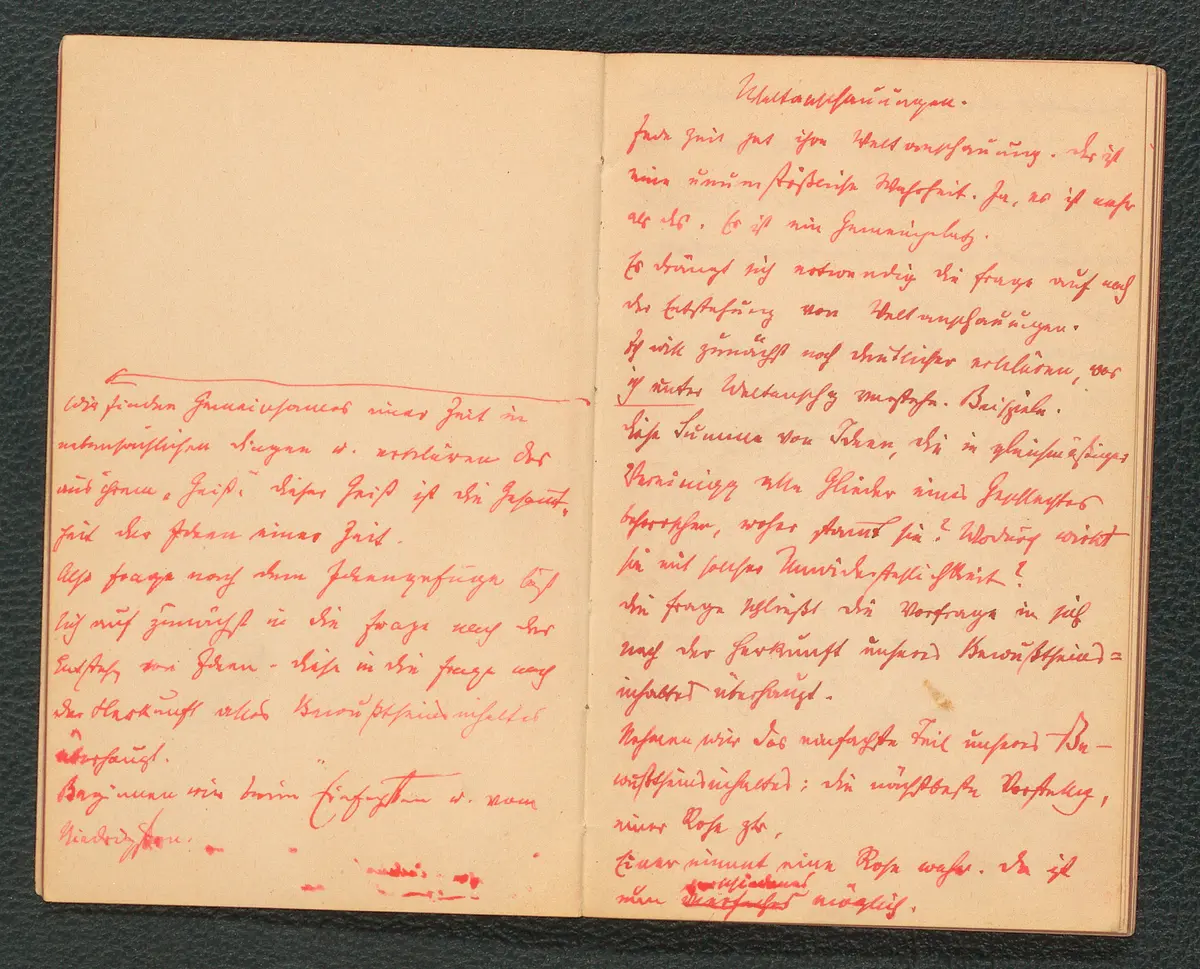 Wir finden Gemeinsames einer Zeit in
nebensächlichen Dingen u. erklären das
aus ihrem „Geist“. Dieser Geist ist die Gesamt-
heit der Ideen einer Zeit.
Also Frage nach dem Ideengefüge löst
sich auf zunächst in die Frage nach der
Entstehg von Ideen. Diese in die Frage nach
der Herkunft alles Bewußtheinsinhaltes
überhaupt.
Beginnen wir beim Einfachsten u. vom
Niedrigsten.
Weltanschauungen.
Jede Zeit hat ihre Weltanschauung. Das ist
eine unumstößliche Wahrheit. Ja, es ist mehr
als das. Es ist ein Gemeinplatz.
Es drängt sich notwendig die Frage auf nach
der Entstehung von Weltanschauungen.
Ich will zunächst noch deutlicher erklären, was
ich unter Weltanschg verstehe. Beispiele.
Diese Summe von Ideen, die in gleichmäßiger
Vereinigg alle Glieder eines Geschlechtes
beherrschen, woher stammt sie? Wodurch wirkt
sie mit solcher Unwiderstehlichkeit?
Die Frage schließt die Vorfrage in sich
nach der Herkunft unseres Bewußtheins=
inhaltes überhaupt.
Nehmen wir das einfachste Teil unseres Be-
wußtheinsinhaltes: die nächstbeste Vorstellg,
einer Rose zb.,
Einer nimmt eine Rose wahr. Da ist
verschiedenes
nun möglich.